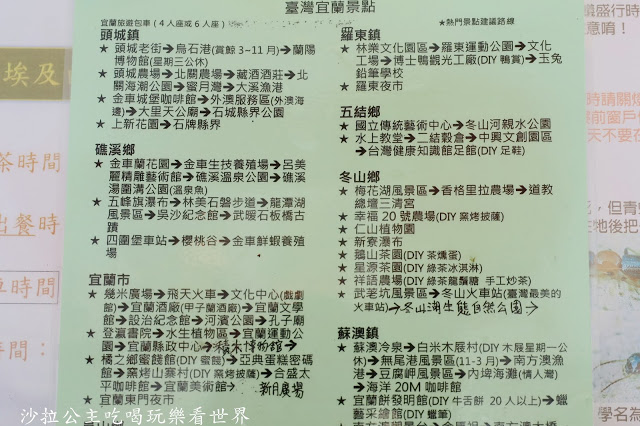 臺灣宜蘭景點
宜蘭旅遊包車（4人座或6人座）
★熱門景點建議路線
頭城鎮
★ 頭城老街→烏石港(賞鯨3~11月)→蘭陽
博物館(星期三公休)
★ 頭城農場→北關農場→藏酒酒莊→北
關海潮公園→蜜月灣→大溪漁港
★ 金車城堡咖啡館→外澳服務區(外澳海
邊)→大里天公廟→石城縣界公園
★ 上新花園→石牌縣界
礁溪鄉
★ 金車蘭花園→金車生技養殖場→呂美
麗精雕藝術館→礁溪溫泉公園→礁溪
湯圍溝公園(溫泉魚)
★ 五峰旗瀑布→林美石磐步道→龍潭湖
風景區→吳沙紀念館→武暖石板橋古
蹟
★ 四圍堡車站→櫻桃谷→金車鮮蝦養殖
場
宜蘭市
★ 幾米廣場→飛天火車→文化中心(戲劇
館)→宜蘭酒廠(甲子蘭酒廠)→宜蘭文學
館→設治紀念館→河濱公園→孔子廟
★ 登瀛書院→水生植物區→宜蘭運動公
園→宜蘭縣政中心→積木博物館→
★ 橘之鄉蜜餞館(DIY 蜜餞)→亞典蛋糕密碼
館→窯烤山寨村(DIY 窯烤披薩)→合盛太
平咖啡館→宜蘭美術館→ 新月廣場
★ 宜蘭東門夜市
羅東鎮
★ 林業文化園區→羅東運動公園→文化
工場→博士鴨觀光工廠(DIY 鴨賞)→玉兔
鉛筆學校
★ 羅東夜市
五結鄉
★ 國立傳統藝術中心→冬山河親水公園
★ 水上教堂→二結穀倉→中興文創園區
→台灣健康知識館足館(DIY 足鞋)
冬山鄉
★ 梅花湖風景區→香格里拉農場→道教
總壇三清宮
★ 幸福20號農場(DIY 窯烤披薩)
★ 仁山植物園
★ 新寮瀑布
★ 鵝山茶園(DIY 茶燻蛋)
★ 星源茶園(DIY 綠茶冰淇淋)
★ 祥語農場(DIY 綠茶龍鬚糖 手工炒茶)
★ 武荖坑風景區→冬山火車站(臺灣最美的
火車站)→冬山湖生態休樂公園→
蘇澳鎮
★ 蘇澳冷泉→白米木屐村(DIY 木屐星期一公
休)→無尾港風景區(11-3月)→南方澳漁
港→豆腐岬風景區→內埤海灘(情人灣)
→海洋20M 咖啡館
★ 宜蘭餅發明館(DIY 牛舌餅 20人以上)→蠟
藝菜繪館(DIY 蠟筆)
埃及
茶時間
出餐時
時間
時間：
盛行時
意唷！
時請關
前窗戶
天不要在
，但青
在牠後把
學名為
沙拉公主吃喝玩樂看世界